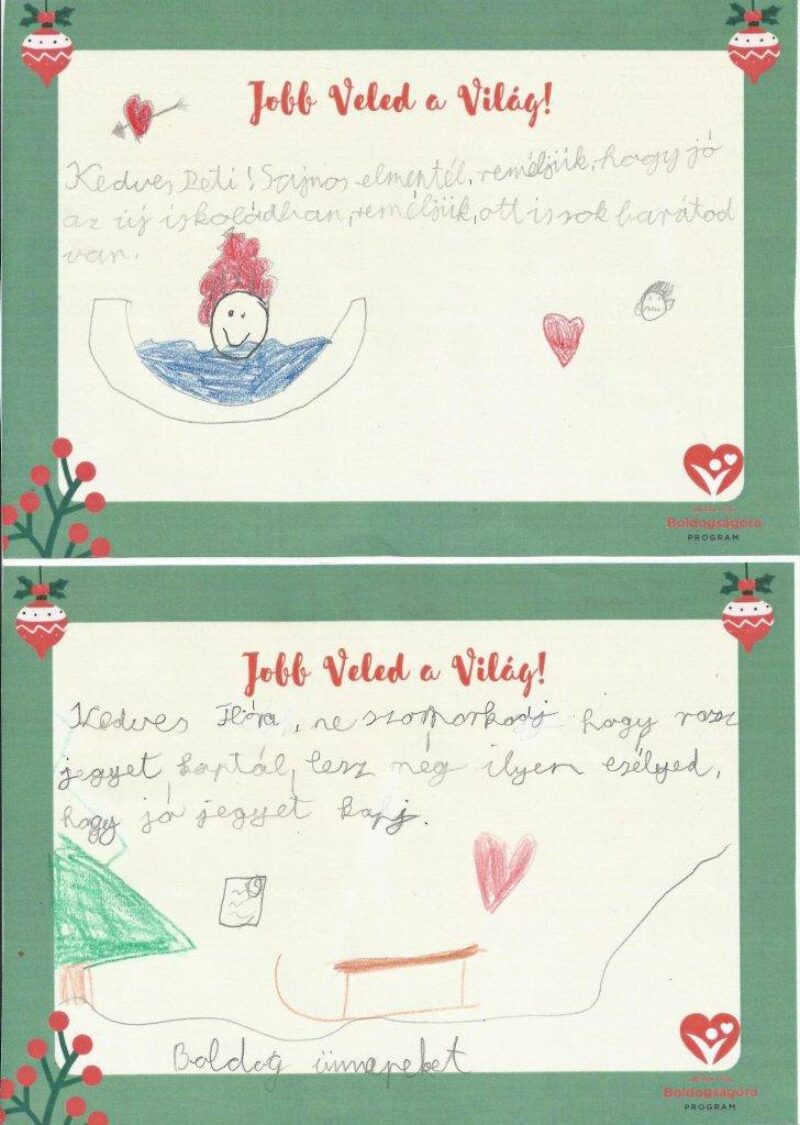 Jobb Veled a Világ!
Kedves Peti! Sajnos elmentél, reméljük, hogy jó
az új iskoládban, reméljük, ott is sok barátod
van.
Boldogságóra
PROGRAM
Jobb Veled a Világ!
Kedves Flóra, ne szomorkodj hogy rossz
jegyet kaptál, lesz még ilyen esélyed,
hogy jó jegyet kapj.
Boldog ünnepeket
Boldogságóra
PROGRAM